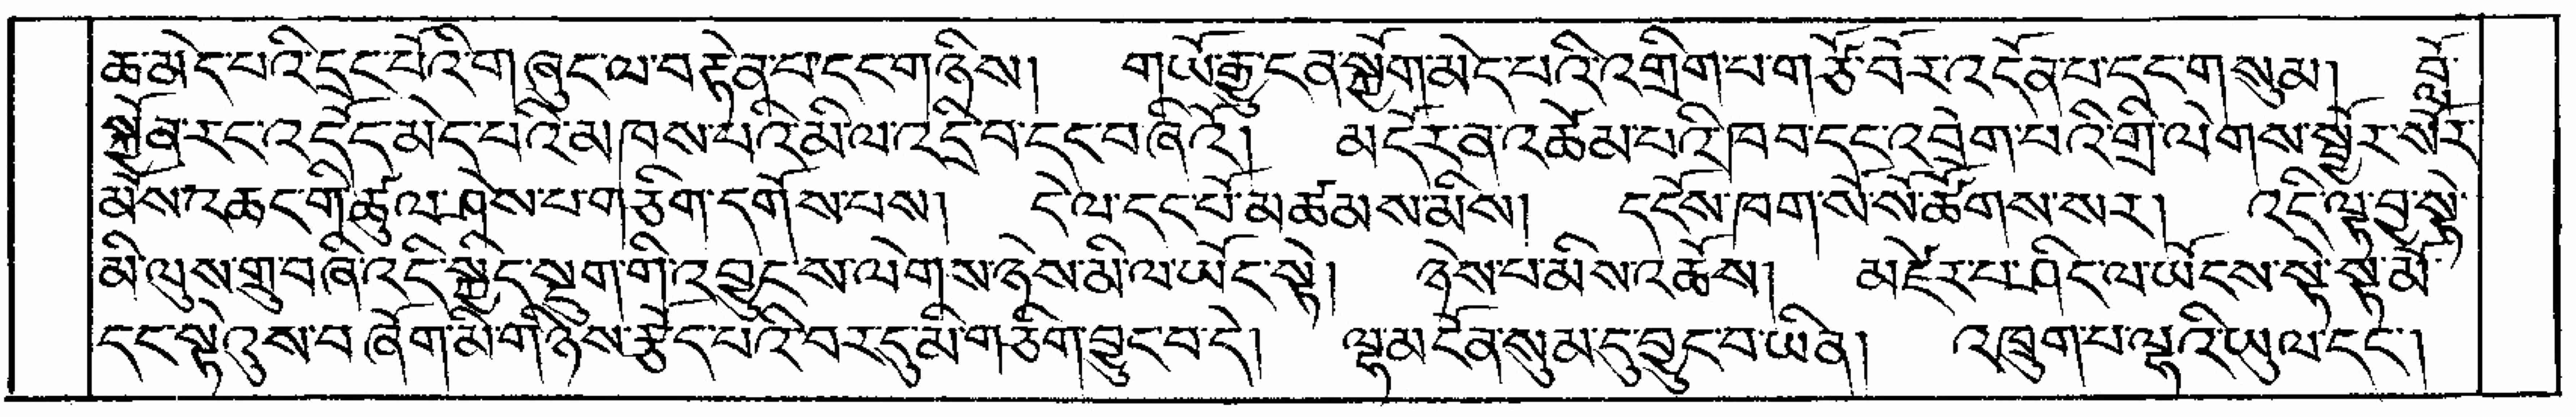 ཆ་མེད་པའི་དྲང་པོའི་གཞུང་ལ་བརྟེན་པ་དང་གཉིས། གཡོ་རྒྱུ་ངན་སྐྱོག་མེད་པའི་འགྲིག་པ་གཙོ་བོར་འདོན་པ་དང་གསུམ། བློ་
སྐྱོན་རང་འདོད་མེད་པའི་མཁས་པའི་མི་ལ་འདྲི་བ་དང་བཞིའོ། མདོར་ན་འཚེམ་པའི་ཁབ་དང་འབྲེག་པའི་གྲི་ལེགས་སྦྱོར་སོར་
མོས་འཆང་གི་ཚུལ་ཤེས་པ་གཅིག་དགོས་པས། དེ་ལ་དང་པོ་མཚམས་མིས། དངོས་ཁག་སོ་སོ་ཚོགས་སར། འདི་ལྟ་བྱ་སྟེ་
མི་ལུས་གྲུ་བཞི་འདི་སྐྱིད་སྡུག་གི་འབྱུང་ས་ལེགས་ཉེས་མི་ལ་ཡོང་སྟེ། ཉེས་པ་མིས་འཆོས། མཛེར་པ་ཤིང་ལ་ཡོངས་སྟེ་སྟ་མོ་
དང་སྟེའུས་བཞོག་མི་གཉིས་རྩོད་པའི་བར་དུ་མི་གཅིག་བྱུང་བ་དེ། ལྷ་མངོན་སུམ་དུ་བྱུང་བ་ཡིན། འཁྲུག་པ་ལྷའི་ཡུལ་དང་།